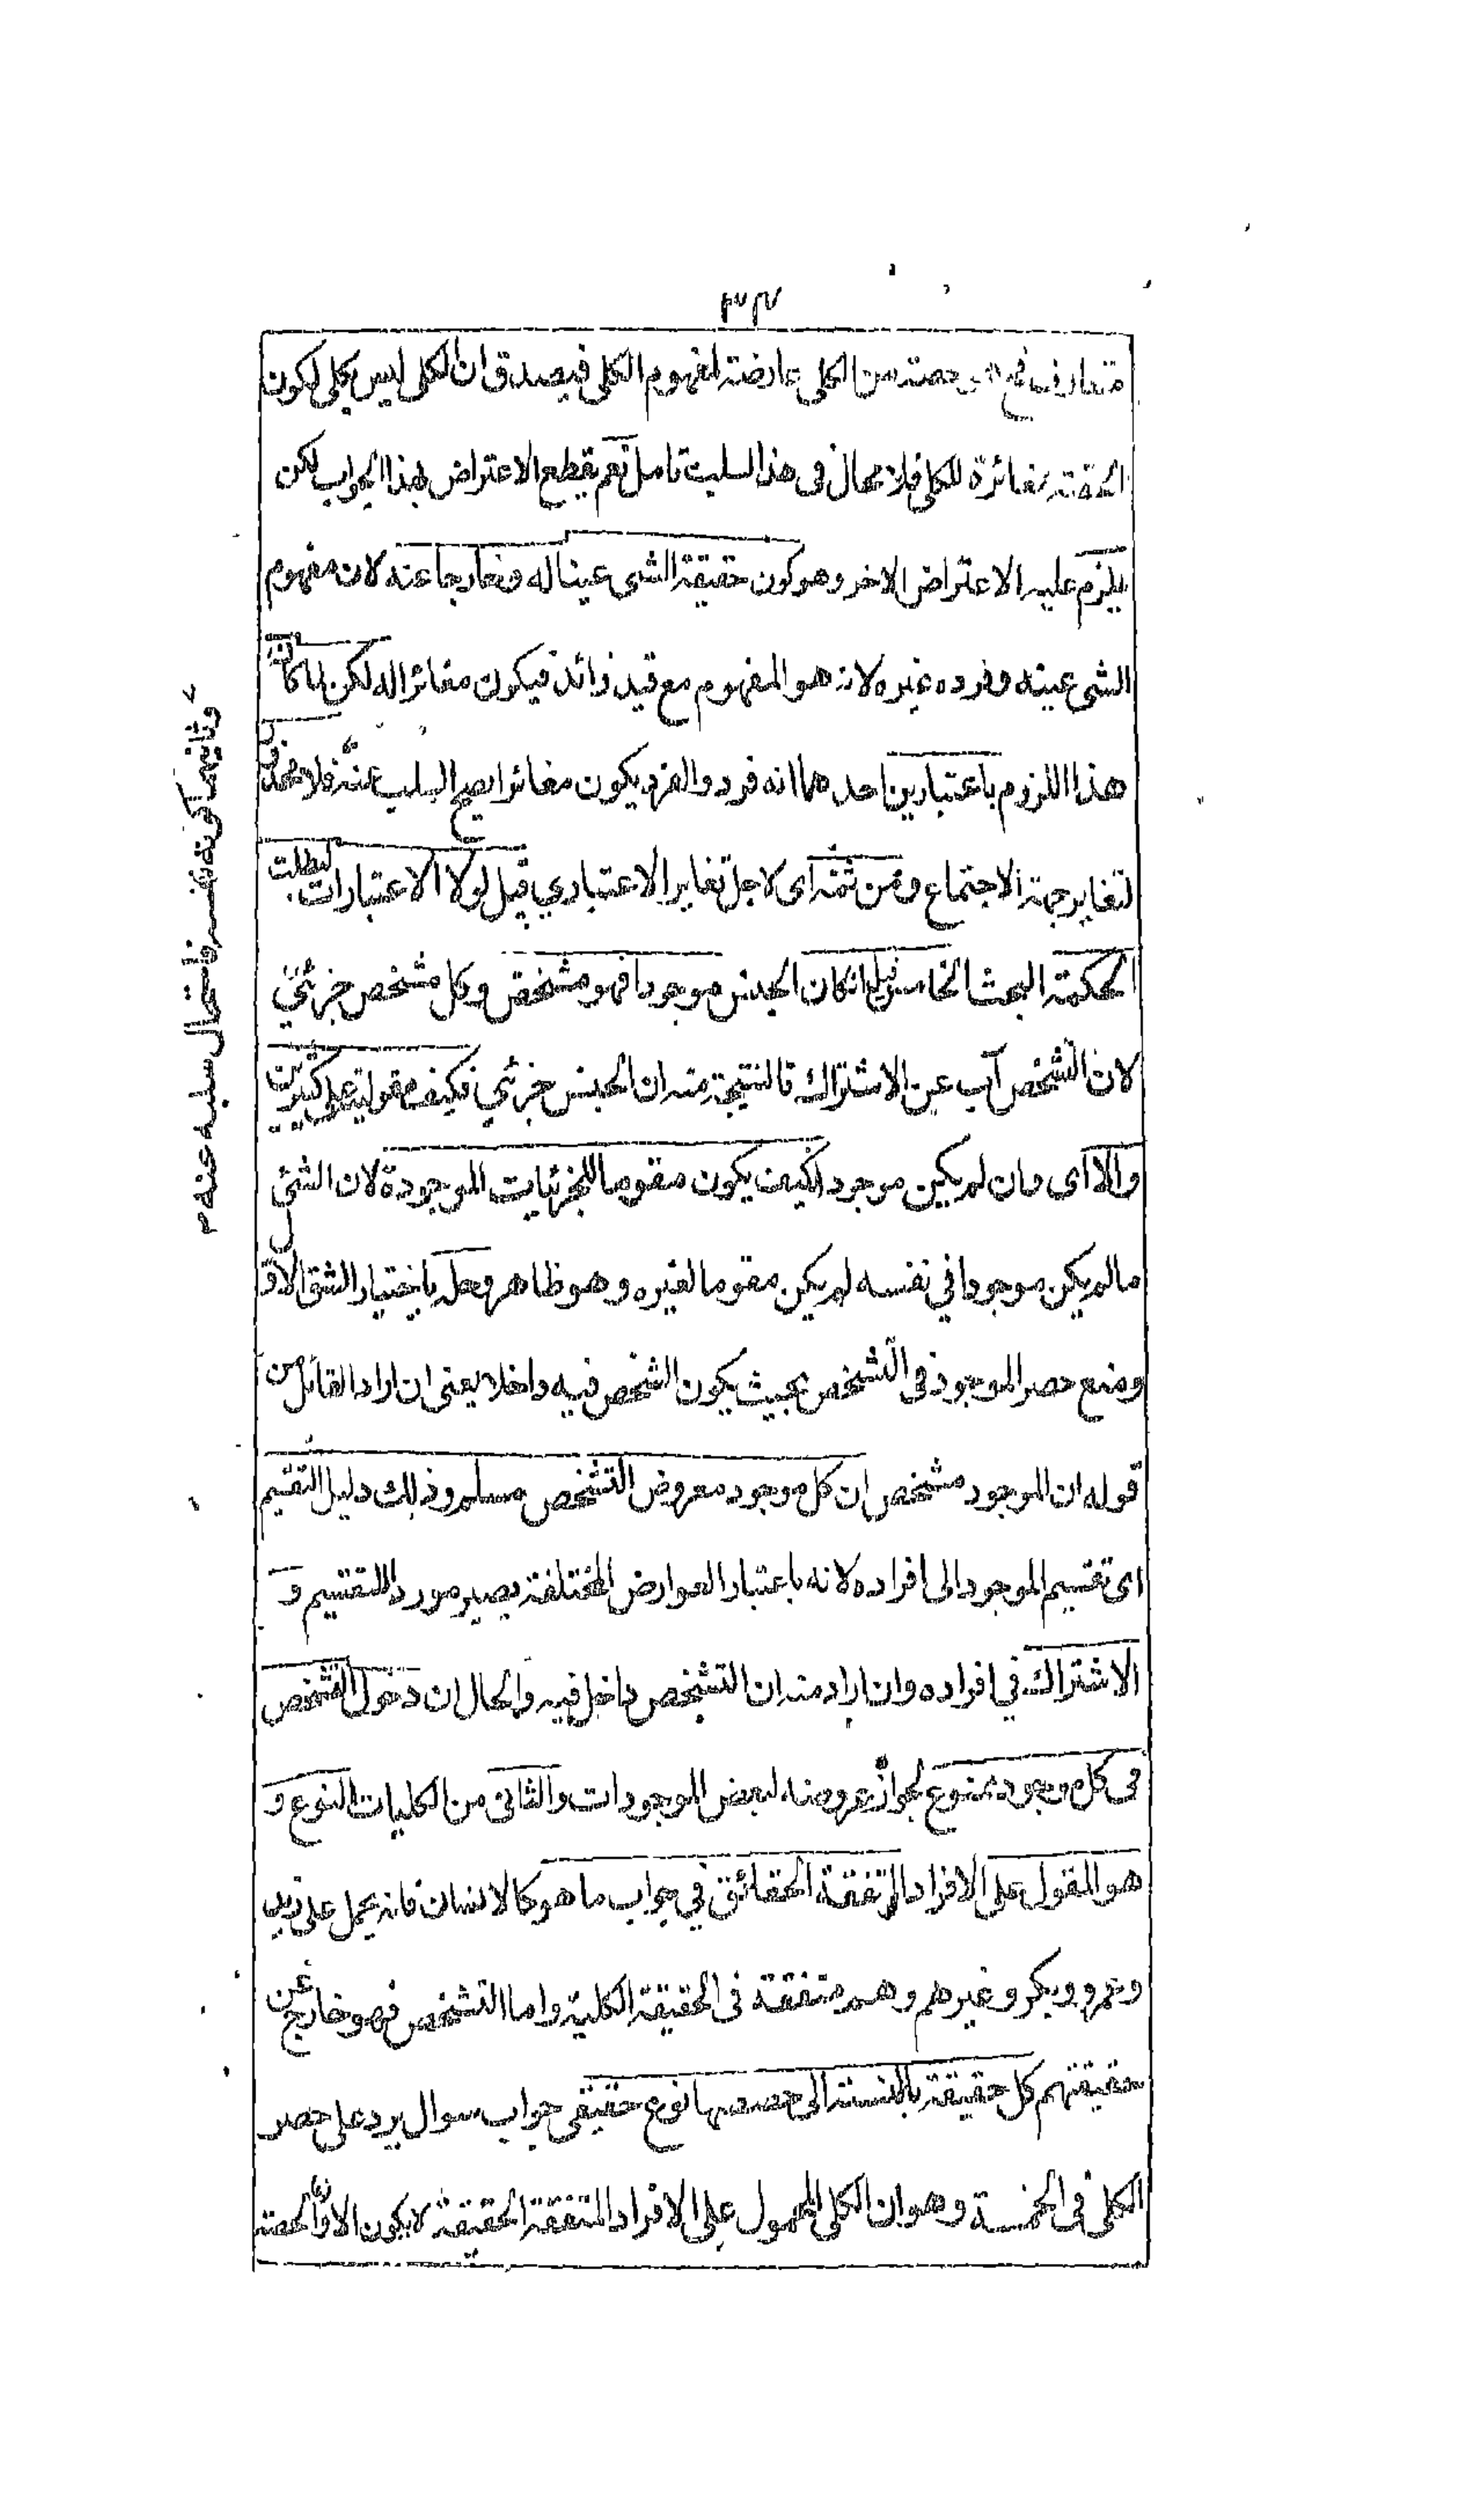 ٣٣٧
متعارف فح حصته من الكلى عارضة لمفهوم الكلى فيصدق ان الكلى ليس بكلى لكون
الحصة مغائرة للكلى فلا محال فى هذا السلب تامل نعم يقطع الاعتراض بهذا الجواب لكن
يلزم عليه الاعتراض الاخر وهو كون حقيقة الشى عينا له وخارجا عنه لان مفهوم
الشى عينه وفرده غيره لانه هو المفهوم مع قيد زائد فيكون مغائرا له لكن لما كان
هذا اللزوم باعتبارين احدهما انه فرد والفرد يكون مغائرا يصح السلب عنه فلا محذور
لتغاير جهة الاجتماع ومن ثمه اى لاجل تغاير الاعتبارى قيل لولا الاعتبارات لبطلت
الحكمة البحث الخامس قيل ان كان الجنس موجودا فهو مشخص وكل مشخص جزئي
لان الشخص آب عن الاشتراك فالنتيجة منه ان الجنس جزئي فكيف مقوليته على كثيرين
والا اى وان لم يكن موجودا فكيف يكون مقوما للجزئيات الموجودة لان الشئ
ما لم يكن موجودا في نفسه لم يكن مقوما لغيره وهو ظاهر وحله باختيار الشق الاول
ومنع حصر الموجود فى التشخص بحيث يكون الشخص فيه داخلا يعنى ان اراد القائل من
قوله ان الموجود مشخص ان كل موجود معروض التشخص مسلم وذلك دليل التقسيم
اى تقسيم الموجود الى افراده لانه باعتبار العوارض المختلفة يصير مورد التقسيم و
الاشتراك في افراده وان اراد منه ان التشخص داخل فيه والحال ان دخول التشخص
فى كل موجود ممنوع لجواز عروضه لبعض الموجودات والثانى من الكليات النوع و
هو المقول على الافراد المتفقة الحقائق في جواب ما هو كالانسان فانه يحمل على زيد
وعمرو وبكر وغيرهم وهم متفقة فى الحقيقة الكلية واما التشخص فهو خارج عن
حقيقتهم كل حقيقة بالنسبة الى حصصها نوع حقيقى جواب سوال يرد على حصر
الكلى فى الخمسة وهو ان الكلى المحمول على الافراد المتفقة الحقيقة لا يكون الا
وثانيهما كونه نفسه فاستحال سلبه عنه م